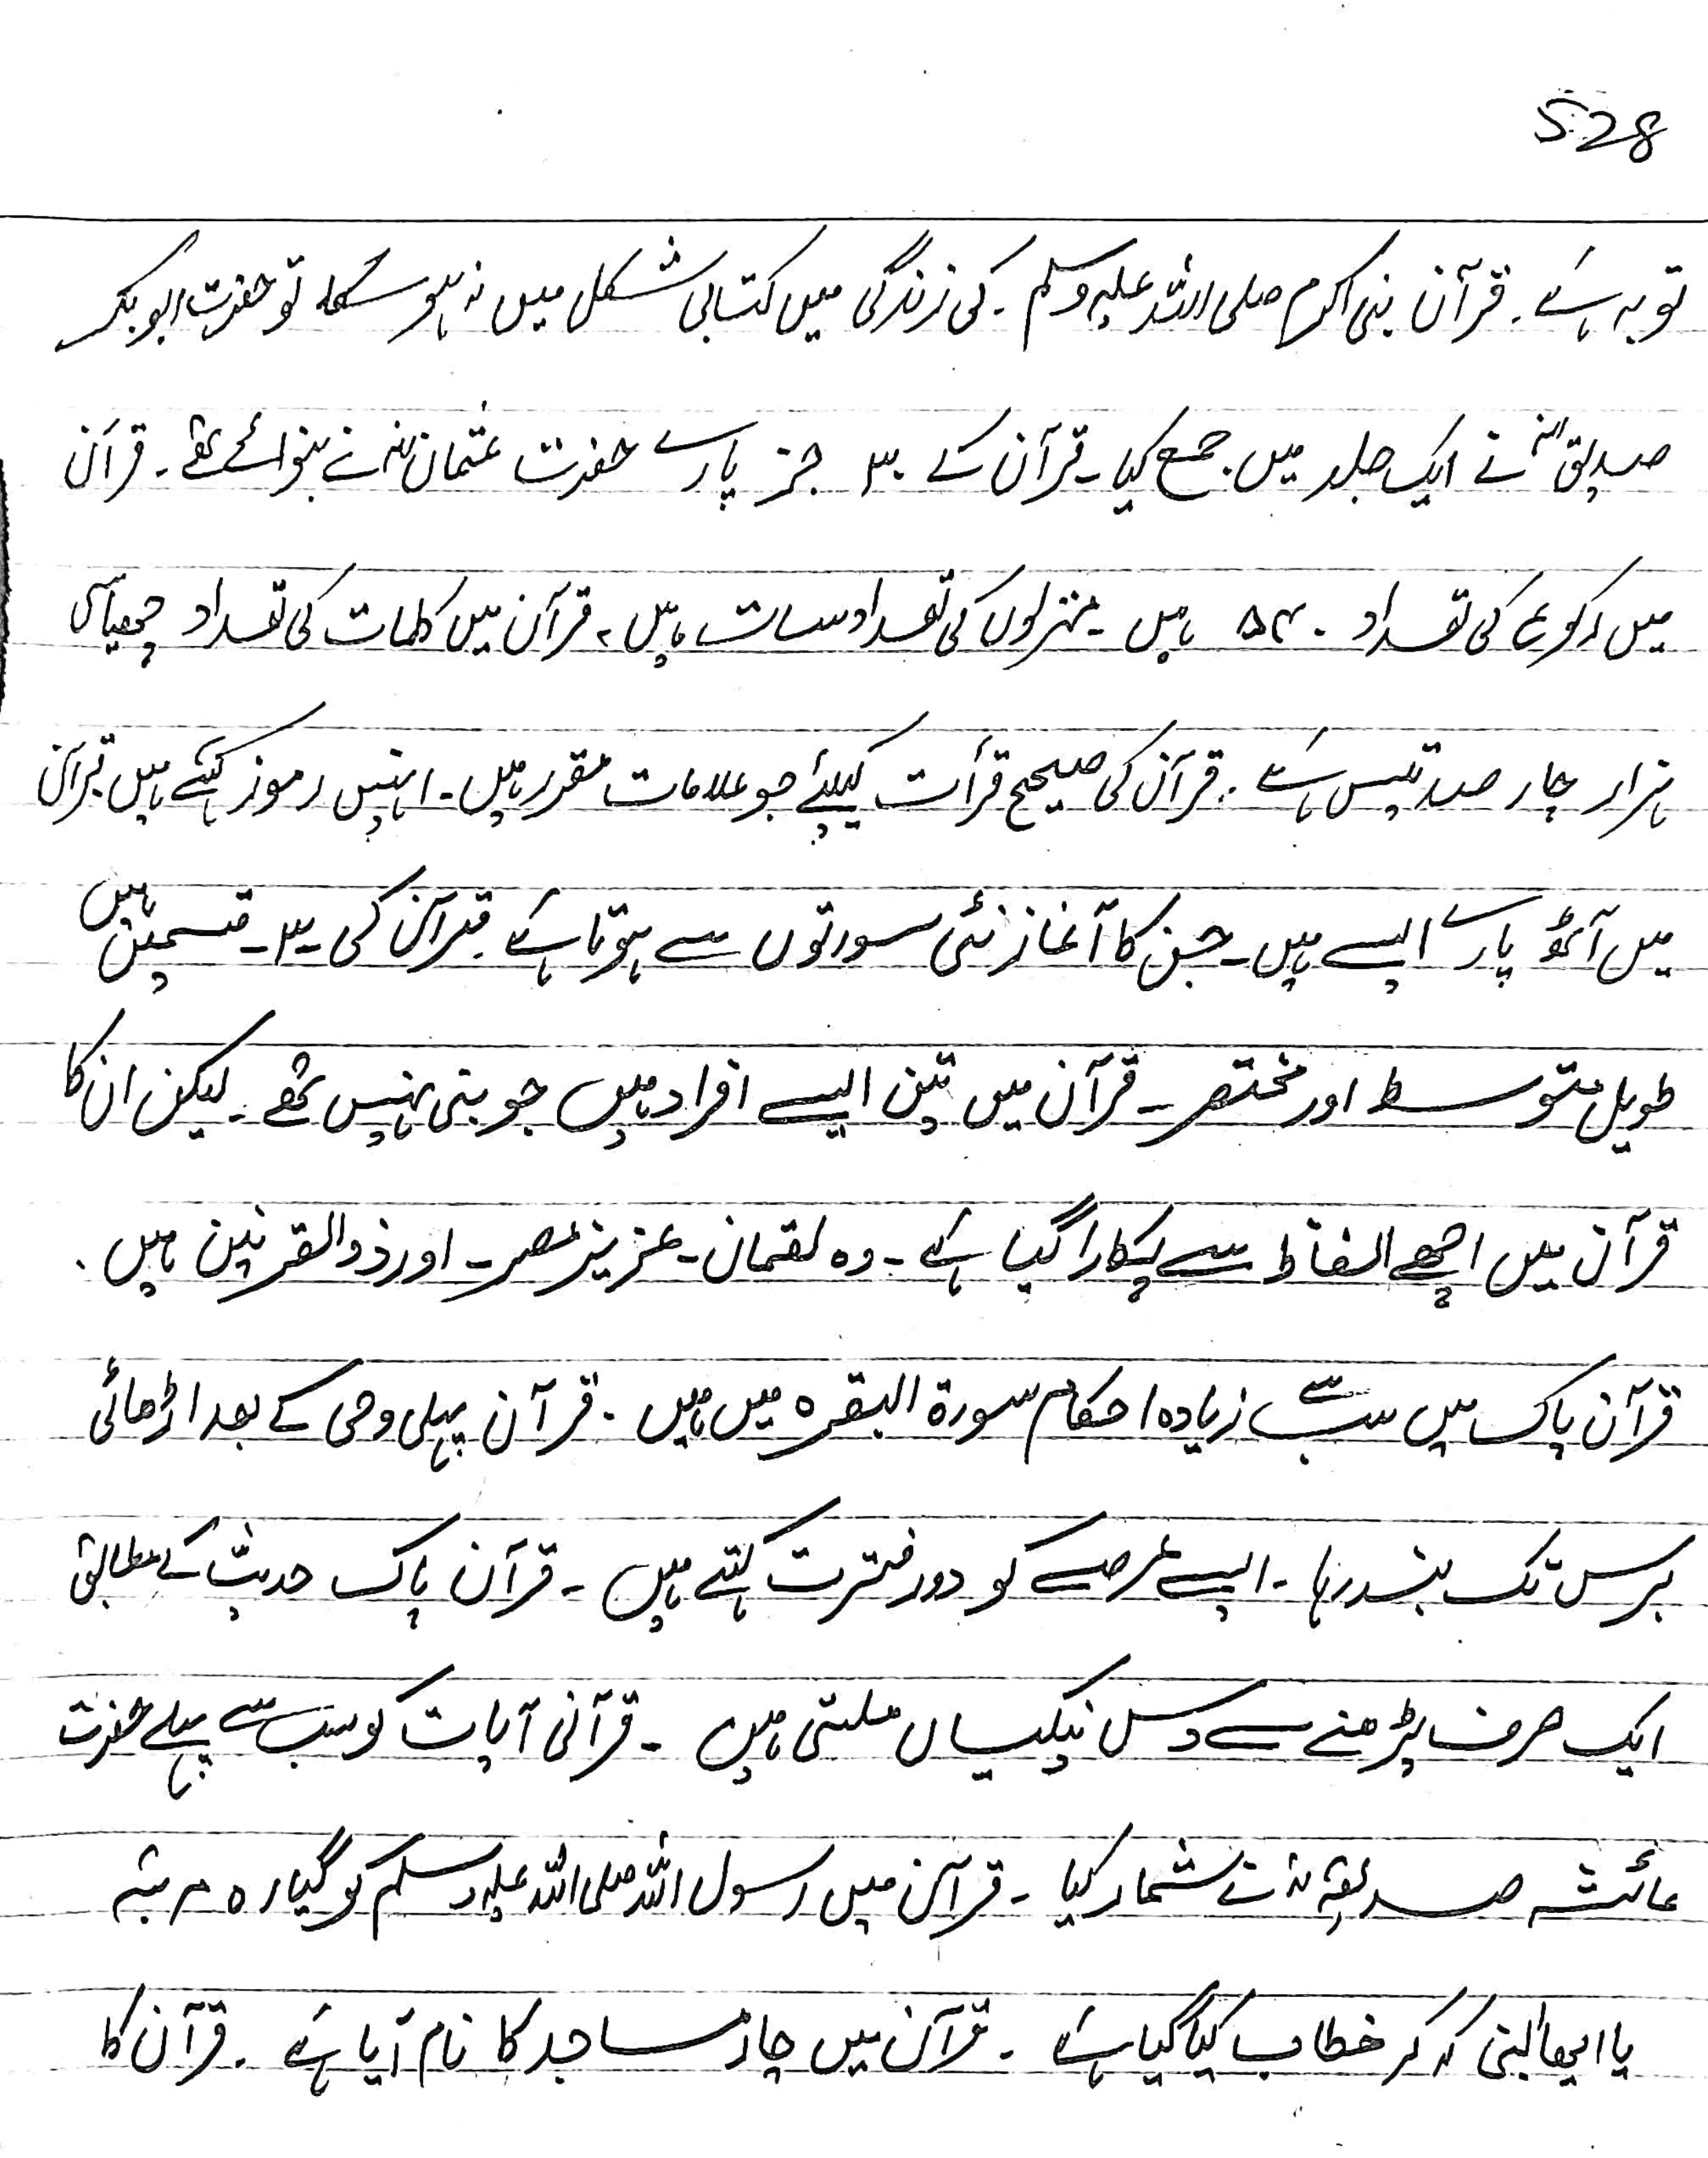 528
توبہ ہے۔ قرآن نبی اکرم صلی اللہ علیہ وسلم۔ کی زندگی میں کتابی شکل میں نہ ہو سکا تو حضرت ابو بکر
صدیقؓ نے ایک جلد میں جمع کیا۔ قرآن کے ۳۰ جز پارے حضرت عثمانؓ نے بنوائے تھے۔ قرآن
میں رکوع کی تعداد ۵۴۰ ہیں۔ منزلوں کی تعداد سات ہیں۔ قرآن میں کلمات کی تعداد چھیاسی
ہزار چار صد تیس ہے۔ قرآن کی صیحح قرأت کیلئے جو علامات مقرر ہیں۔ انہیں رموز کہتے ہیں قرآن
میں آٹھ پارے ایسے ہیں۔ جن کا آغاز نئی سورتوں سے ہوتا ہے۔ قرآن کی ۔۳۔ قسمیں ہیں
طویل متوسط اور مختصر۔ قرآن میں تین ایسے افراد ہیں جو نبی نہیں تھے۔ لیکن ان کا
قرآن میں اچھے الفاظ سے پکارا گیا ہے۔ وہ لقمان۔ عزیز مصر۔ اور ذوالقرنین ہیں۔
قرآن پاک میں سب سے زیادہ احکام سورۃ البقرہ میں ہیں۔ قرآن پہلی وحی کے بعد اڑھائی
برس تک بند رہا۔ ایسے عرصے کو دور فترت کہتے ہیں۔ قرآن پاک حدیث کے مطابق
ایک حرف پڑھنے سے دس نیکیاں ملتی ہیں۔ قرآنی آیات کو سب سے پہلے حضرت
عائشہ صدیقہؓ نے شمار کیا۔ قرآن میں رسول اللہ صلی اللہ علیہ وسلم کو گیارہ مرتبہ
یا ایھا لنبی کہ کر خطاب کیا گیا ہے۔ قرآن میں چار مساجد کا نام آیا ہے۔ قرآن کا